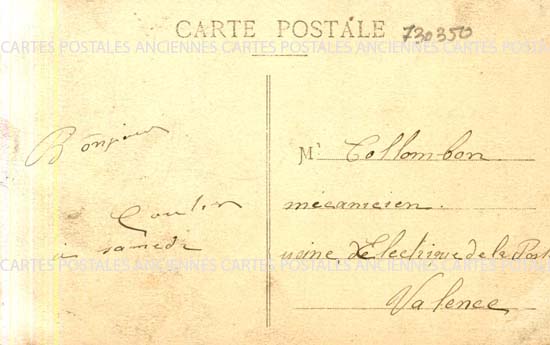 CARTE POSTALE 730350
CARTES POSTALES ANCIENNES CARTES POSTALES ANCIENNES CARTES POSTALES
Bonjour
à samedi
M. Collombon
mécanicien
usine Electrique de la
Valence
CARTES POSTALES ANCIENNES CARTES POSTALES ANCIENNES CARTES POSTALES